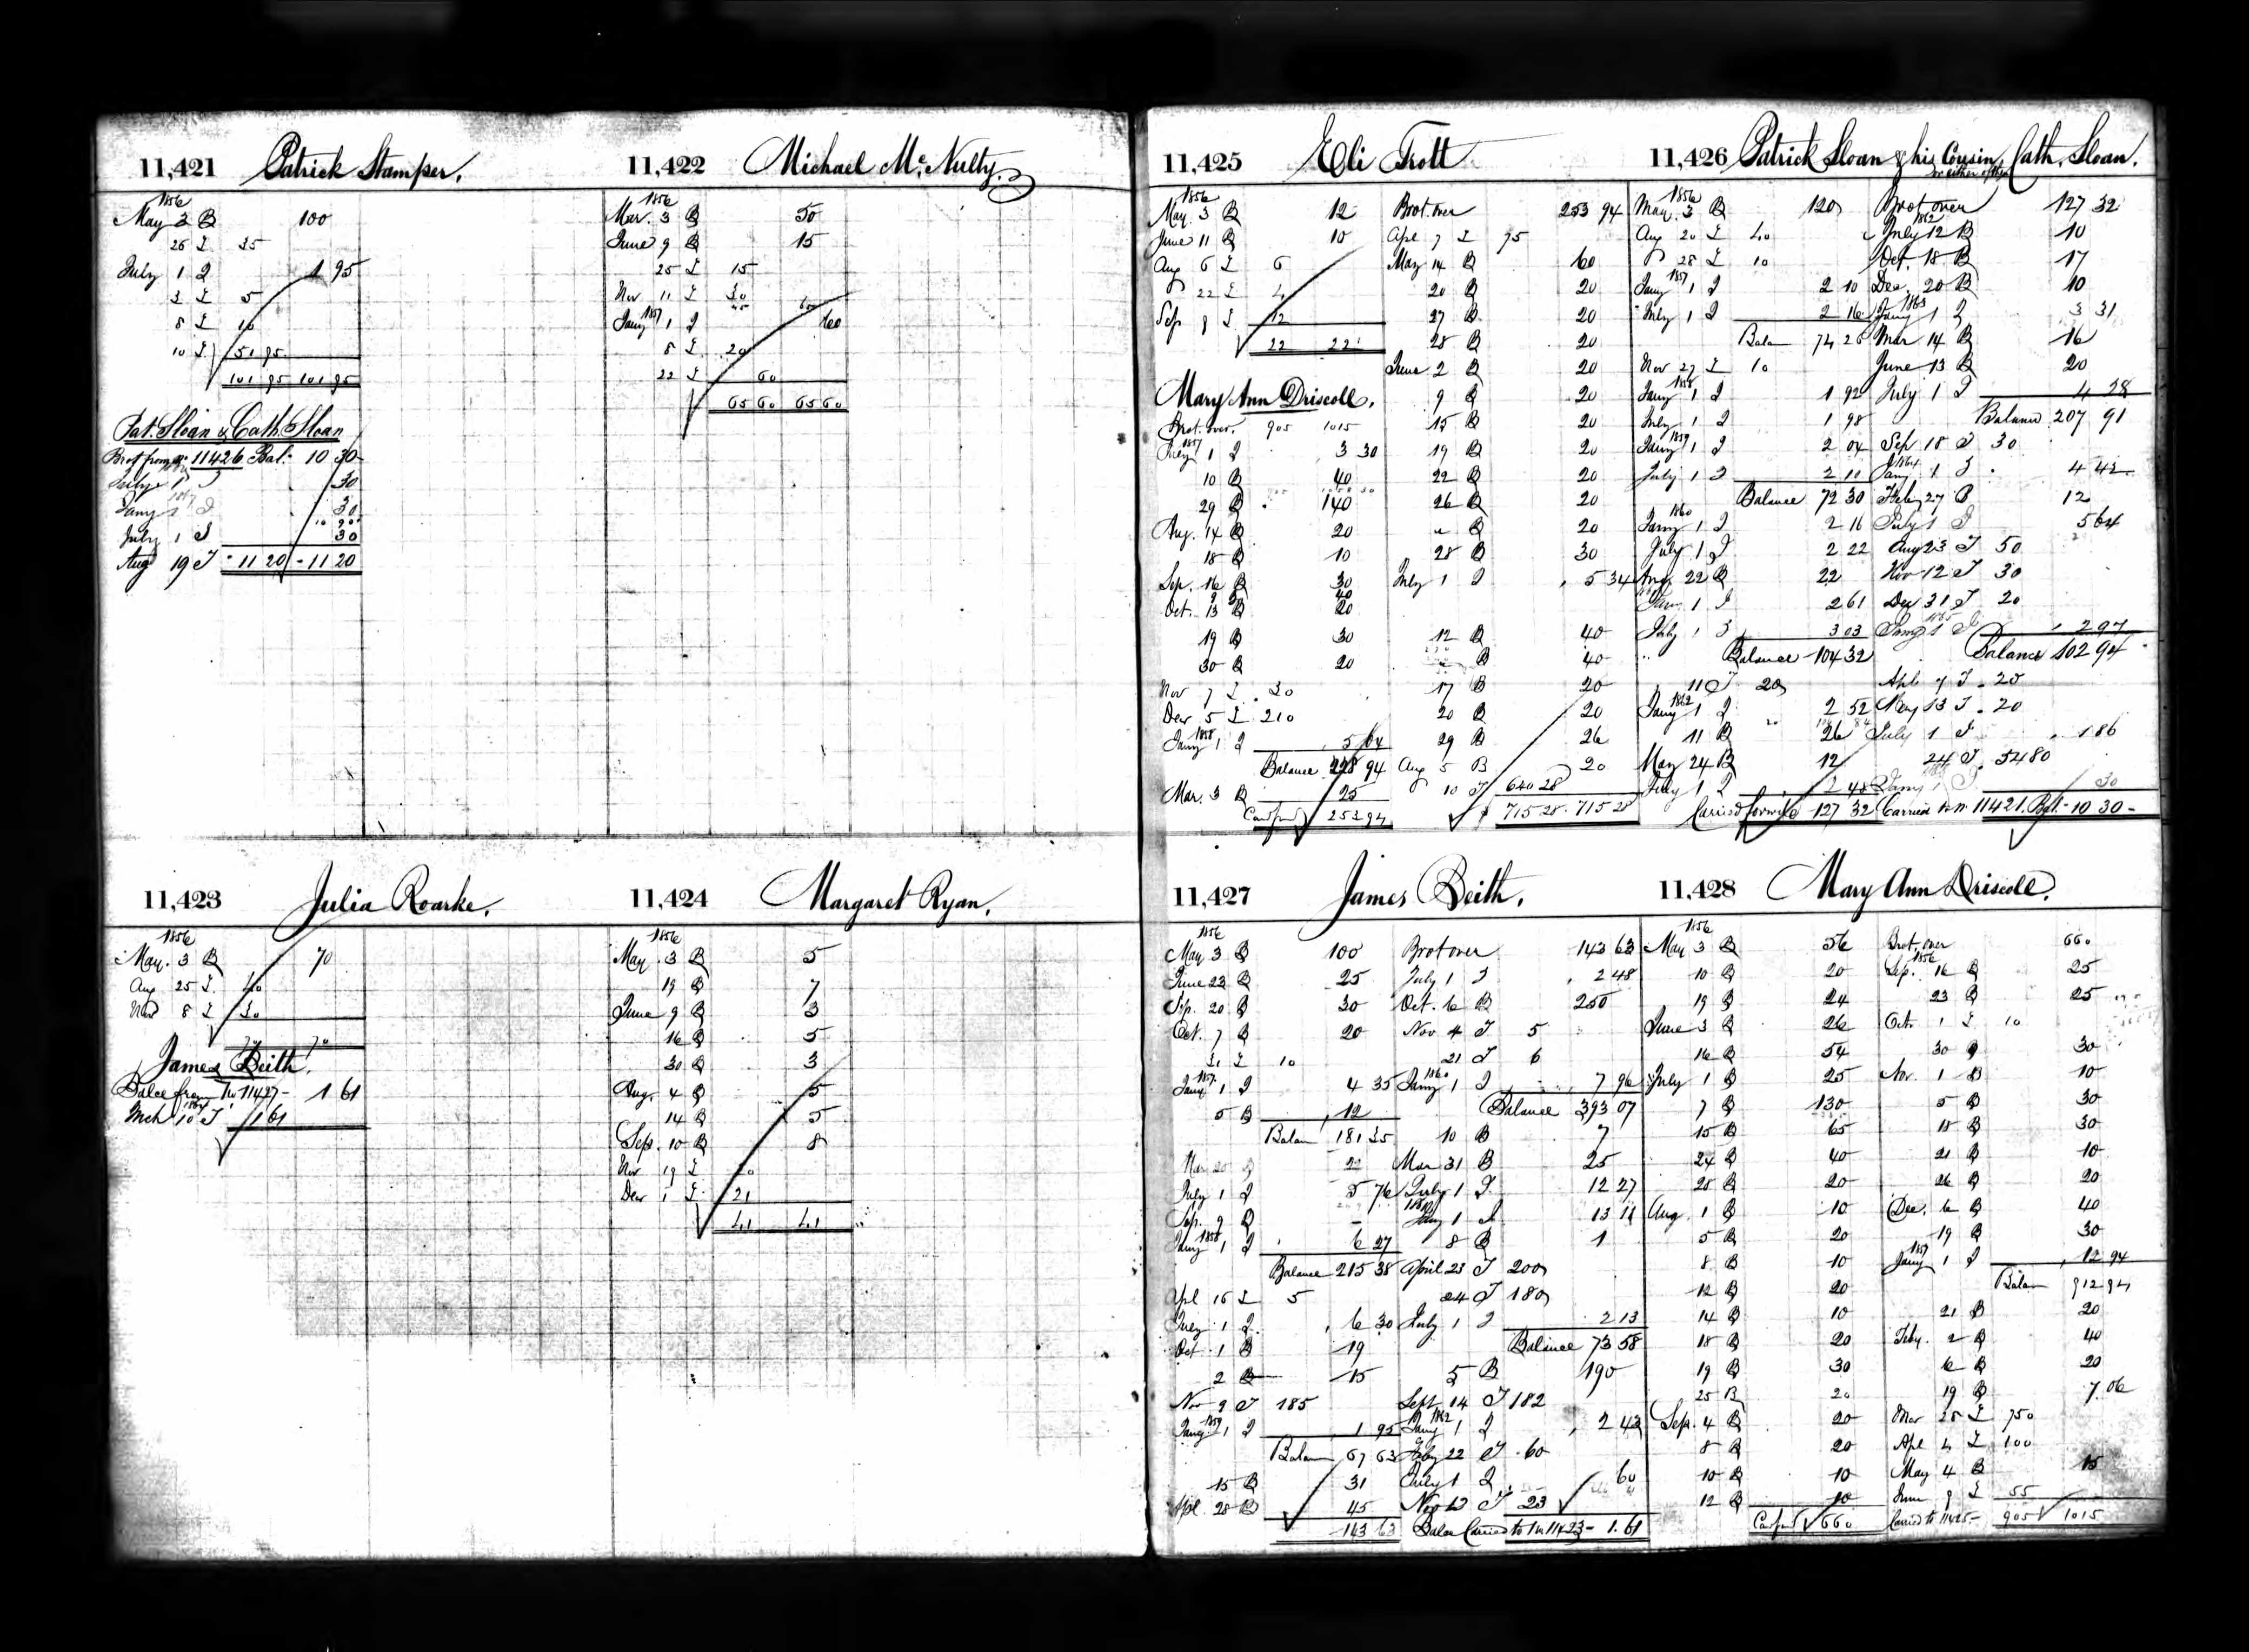 11,421 Patrick Stamper.
1856
May 3 B 100
26 I 35
July 1 I 1 95
3 I 5
8 I 10
10 I 51 95
101 95 101 95
Pat. Sloan & Cath. Sloan
Brot from No 11426 Bal. 10 30
July 1 I 30
Jany 1 I 30
July 1 I 30
Aug 19 I 11 20 11 20
11,422 Michael McNulty.
1856
Mar. 3 B 50
June 9 B 15
25 I 15
Nov 11 I 30
1857
Jany 1 I 60
8 I 20
22 I 60
65 60 65 60
11,423 Julia Roarke.
1856
May. 3 B 70
Aug 25 I 40
Nov 8 I 30
70 70
James Beith.
Balce from No 11427 - 1 61
Mch 10 I 1 61
11,424 Margaret Ryan.
1856
May. 3 B 5
19 B 7
June 9 B 3
16 B 5
30 B 3
Aug. 4 B 5
14 B 5
Sep. 10 B 8
Nov 19 I 20
Dec 1 I 21
41 41
11,425 Eli Trott
1856
May. 3 B 12
June 11 B 10
Aug 6 I 6
22 I 4
Sep 9 I 12
22 22
Mary Ann Driscoll.
Brot. over. 905 1015
1857
July 1 I 3 30
10 B 40
29 B 140
Aug. 14 B 20
18 B 10
Sep. 16 B 30
Oct. 13 B 20
19 B 30
30 B 20
Nov 7 I 30
Dec 5 I 210
1858
Jany 1 I 5 64
Balance 228 94
Mar. 3 B 25
Card ford 253 94
Brot. over 253 94
Apl 7 I 75
May 14 B 60
20 B 20
27 B 20
28 B 20
June 2 B 20
9 B 20
15 B 20
19 B 20
22 B 20
26 B 20
" B 20
28 B 30
July 1 I 5 34
12 B 40
" B 40
17 B 20
20 B 20
29 B 26
Aug 5 B 20
10 I 640 28
715 28 715 28
11,426 Patrick Sloan & his Cousin, Cath. Sloan.
or either of them
1856
May. 3 B 120
Aug 20 I 40
28 I 10
1857
Jany 1 I 2 10
July 1 I 2 16
Balan 74 26
Nov 27 I 10
1858
Jany 1 I 1 92
July 1 I 1 98
1859
Jany 1 I 2 04
July 1 I 2 10
Balance 72 30
1860
Jany 1 I 2 16
July 1 I 2 22
Aug 22 B 22
Jan 1 I 2 61
July 1 I 3 03
Balance 104 32
11 I 20
1862
Jany 1 I 2 52
11 B 26
May 24 B 12
July 1 I 2 48
Carried forward 127 32
Brot over 127 32
1862
July 12 B 10
Oct. 18 B 17
Dec. 20 B 10
1863
Jany 1 I 3 31
Mar 14 B 16
June 13 B 20
July 1 I 4 28
Balance 207 91
Sep 18 I 30
1864
Jany 1 I 4 42
Feby 27 B 12
July 1 I 5 64
Aug 23 I 50
Nov 12 I 30
Dec 31 I 20
1865
Jany 1 I 2 97
Balance 102 94
Apl 7 I 20
May 13 I 20
July 1 I 1 86
24 I 54 80
Jany 1 I 30
Carried to No 11421. Bal. 10 30
11,427 James Beith.
1856
May 3 B 100
June 23 B 25
Sep. 20 B 30
Oct. 7 B 20
31 I 10
1857
Jany 1 I 4 35
5 B 12
Balan 181 35
Mar 20 B 22
July 1 I 5 76
Sep. 9 B
1858
Jany 1 I 6 27
Balance 215 38
Apl 15 I 5
July 1 I 6 30
Oct. 1 B 19
2 B 15
Nov 9 I 185
1859
Jany 1 I 1 95
Balan 67 63
15 B 31
Apl. 28 B 45
143 63
Brot over 143 63
July 1 I 2 48
Oct. 6 B 250
Nov 4 I 5
21 I 6
1860
Jany 1 I 7 96
Balance 393 07
10 B 7
Mar 31 B 25
July 1 I 12 27
Jany 1 I 13 11
8 B 1
April 23 I 200
24 I 180
July 1 I 2 13
Balance 73 58
5 B 190
Sept 14 I 182
1862
Jany 1 I 2 43
Feby 22 I 60
July 1 I 60
Nov 12 I 23
Balce Carried to No 11423 - 1.61
11,428 Mary Ann Driscoll.
1856
May 3 B 56
10 B 20
19 B 24
June 3 B 26
16 B 54
July 1 B 25
7 B 130
15 B 65
24 B 40
25 B 20
Aug. 1 B 10
5 B 20
8 B 10
12 B 20
14 B 10
18 B 20
19 B 30
25 B 20
Sep. 4 B 20
8 B 20
10 B 10
12 B 10
Card ford 660
Brot. over 660
1856
Sep. 16 B 25
23 B 25
Octr 1 I 10
30 B 30
Nov. 1 B 10
5 B 30
15 B 30
21 B 10
26 B 20
Dec. 6 B 40
19 B 30
1857
Jany 1 I 12 94
Balan 912 94
21 B 20
Feby. 2 B 40
6 B 20
19 B 7.06
Mar 25 I 750
Apl 4 I 100
May 4 B 15
June 9 I 55
Carried to 11425 - 905 1015